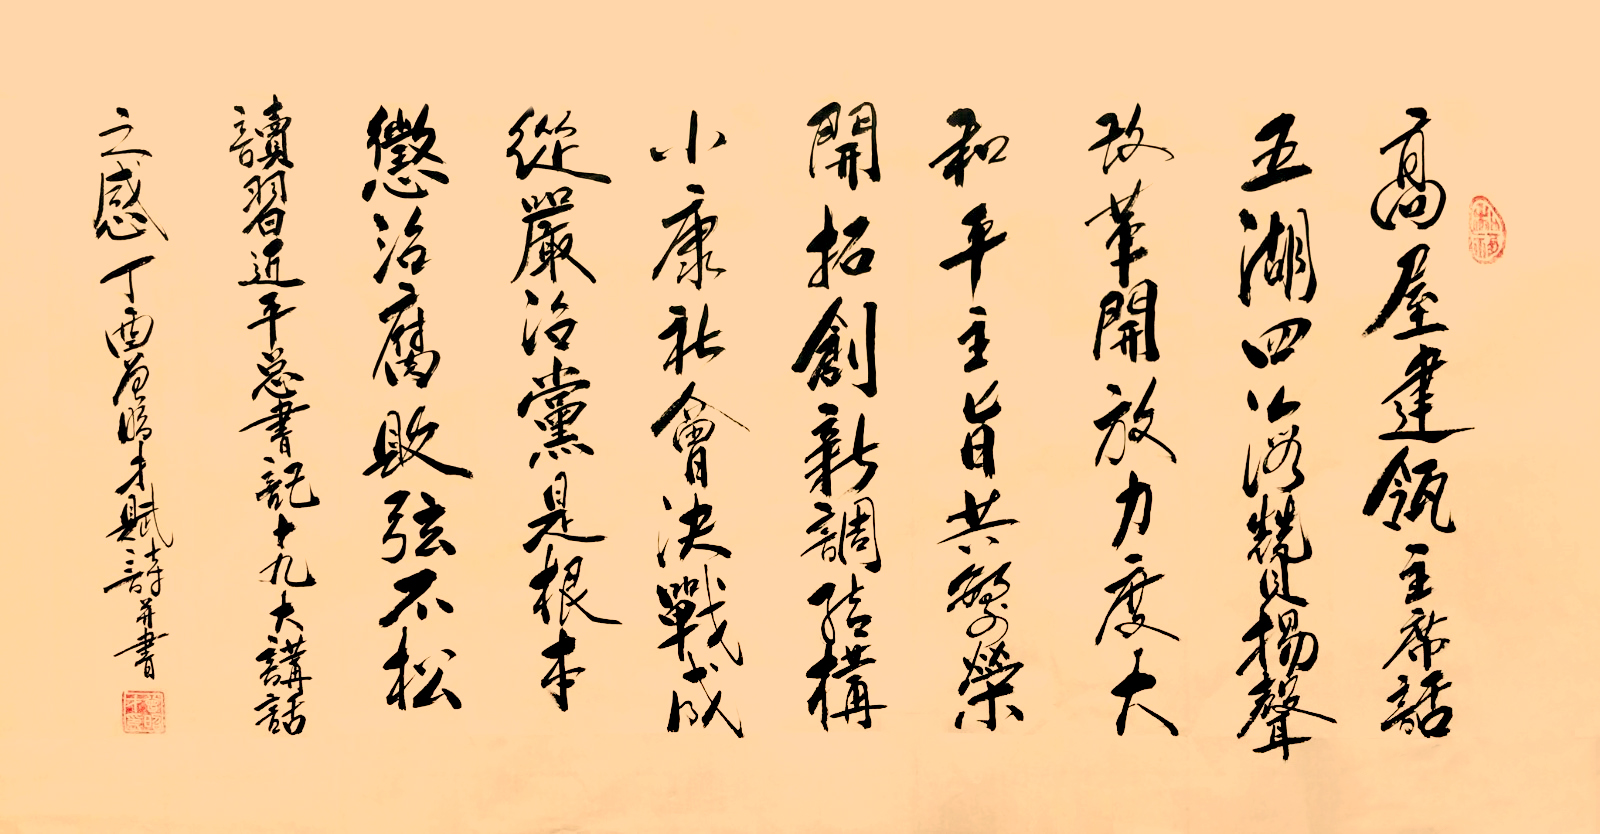 高屋建瓴主席話
五湖四海贊揚聲
改革開放力度大
和平主旨共繁榮
開拓創新調結構
小康社會決戰成
從嚴治黨是根本
懲治腐敗弦不松
讀習近平总書記十九大講話
之感丁酉曾曉才賦詩并書